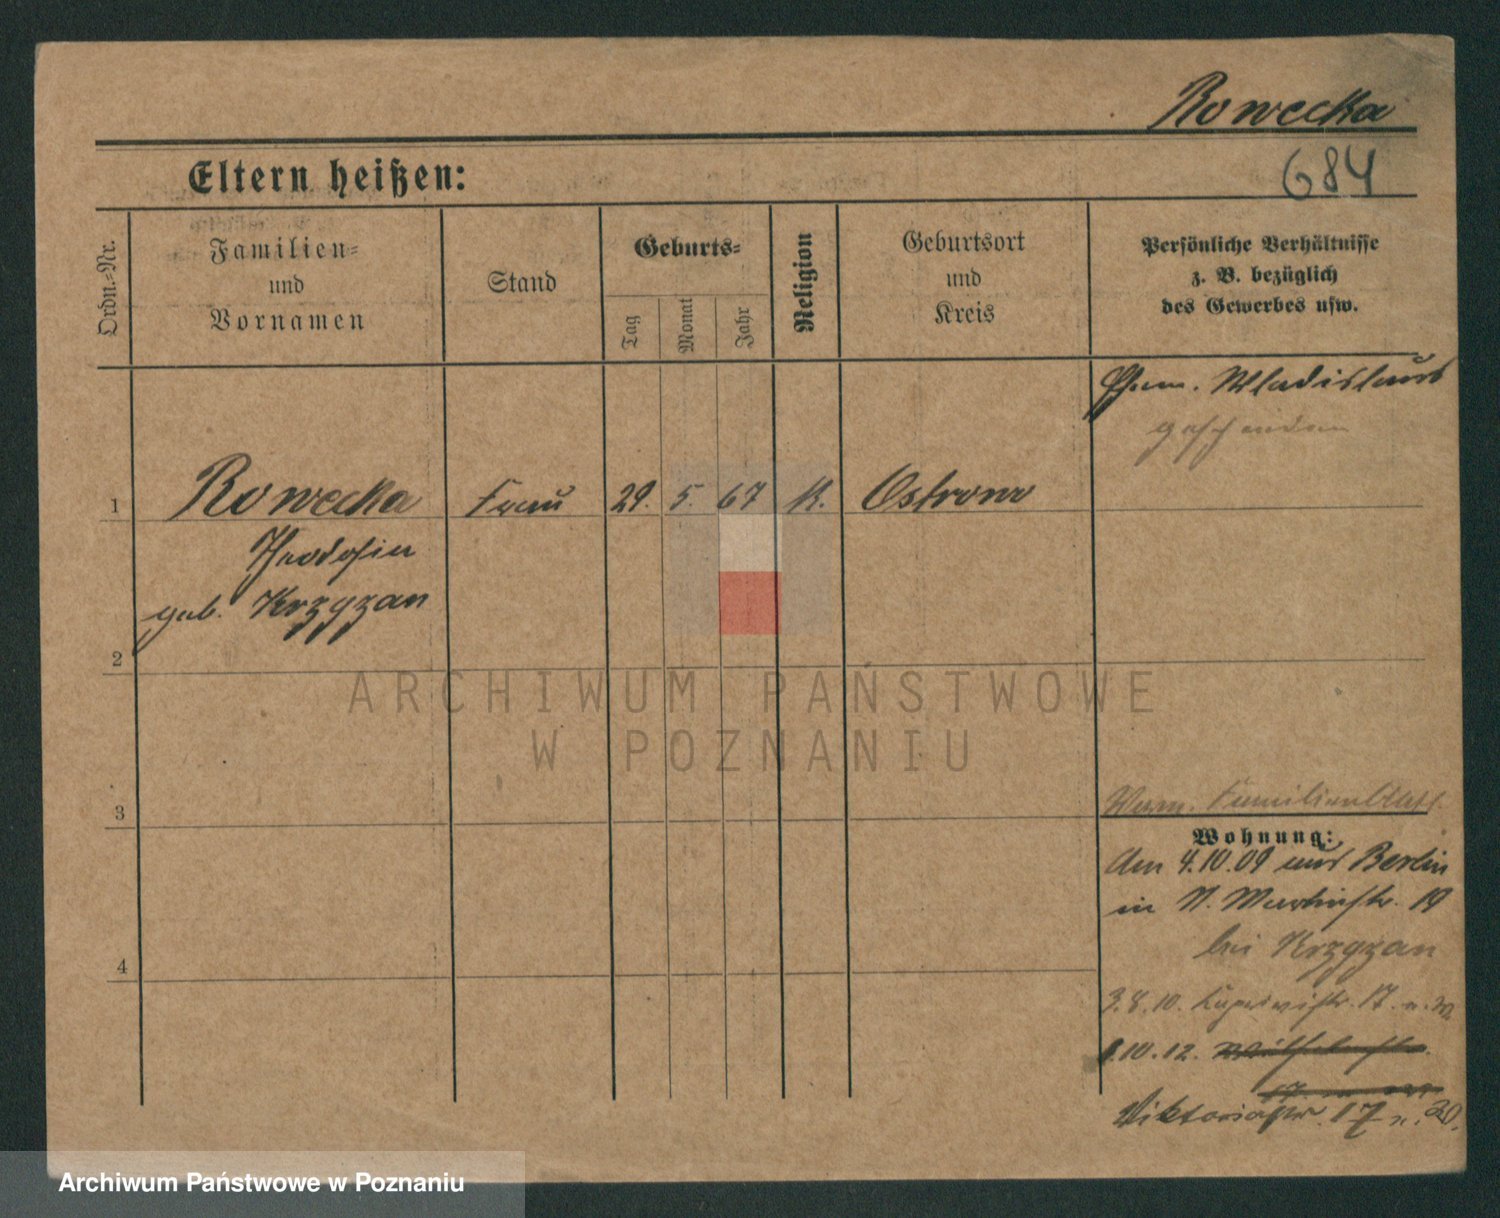 Rowecka
684
Eltern heißen:
Ordn.-Nr.
Familien-
und
Vornamen
Stand
Geburts-
Tag
Monat
Jahr
Religion
Geburtsort
und
Kreis
Persönliche Verhältnisse
z. B. bezüglich
des Gewerbes usw.
Ehem. Wladislaus
geschieden
1
Rowecka Frau 29. 5. 67 K. Ostrowo
Theodosia
geb. Krzyzan
2
ARCHIWUM PAŃSTWOWE
W POZNANIU
3
Familienblatt
Wohnung:
Am 4.10.09 aus Berlin
in St. Martinstr. 19
bei Krzyzan
4
3.8.10. 17.
1.10.12.
Viktoriastr. 17
Archiwum Państwowe w Poznaniu